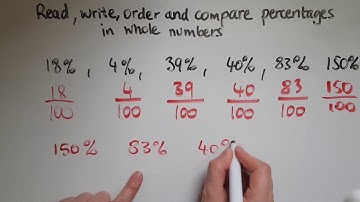 Read, write, order and compare percentages
in whole numbers
18%, 4%, 39%, 40%, 83% 150%
18/100 4/100 39/100 40/100 83/100 150/100
150% 83% 40%